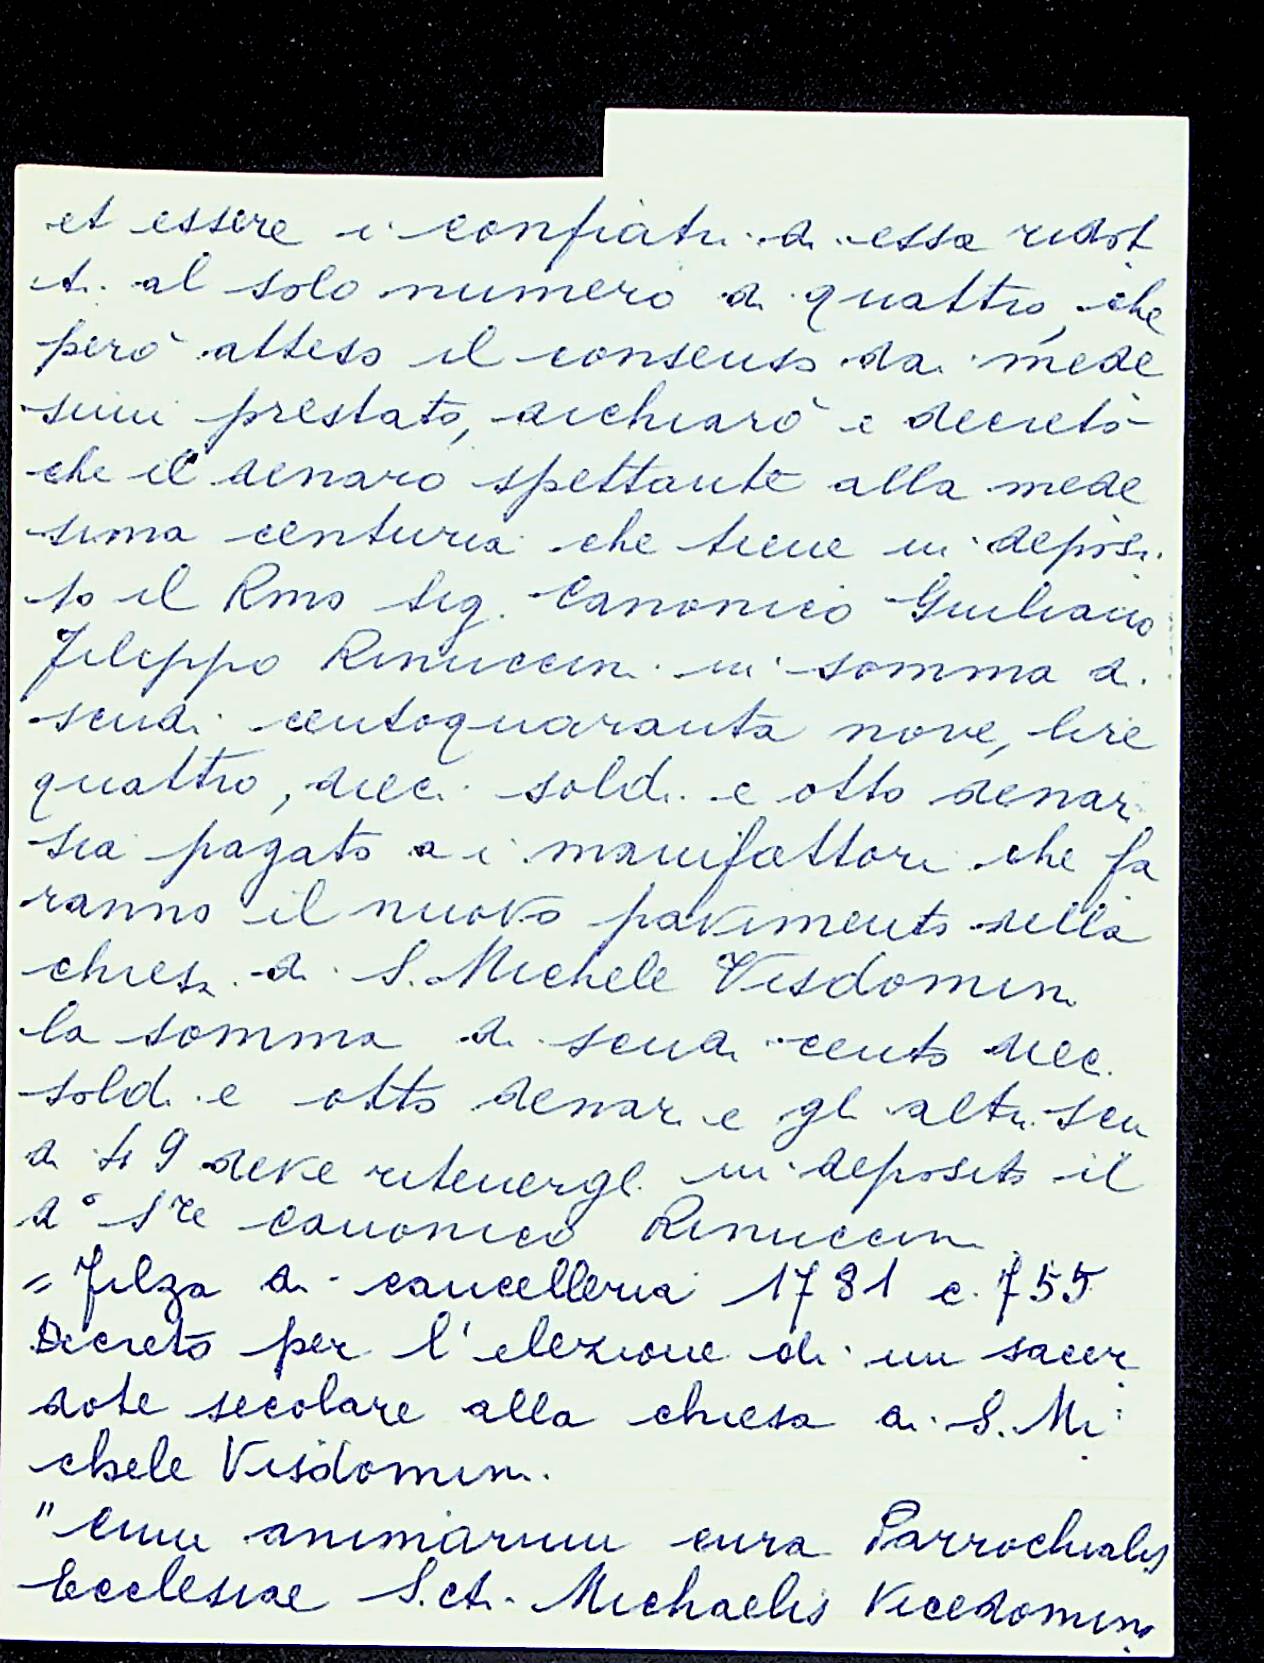 et essere i confrati di essa ridot
ti al solo numero di quattro, che
però atteso il consenso dai mede
simi prestato, dichiarò e decretò
che il denaro spettante alla mede
sima centuria che tiene in deposi
to il Rmo Sig. Canonico Giuliano
Filippo Rinuccini in somma di
scudi centoquaranta nove, lire
quattro, dieci soldi e otto denari
sia pagato a i manifattori che fa
ranno il nuovo pavimento della
chiesa di S. Michele Visdomini
la somma di scudi cento dieci
soldi e otto denari e gli altri scu
di 49 deve ritenergli in deposito il
d° Sre canonico Rinuccini
= Filza di cancelleria 1781 c. 755
Decreto per l'elezione di un sacer
dote secolare alla chiesa di S. Mi
chele Visdomini.
"Cum animarum cura Parrochialis
Ecclesiae S.cti Michaelis Vicedomini